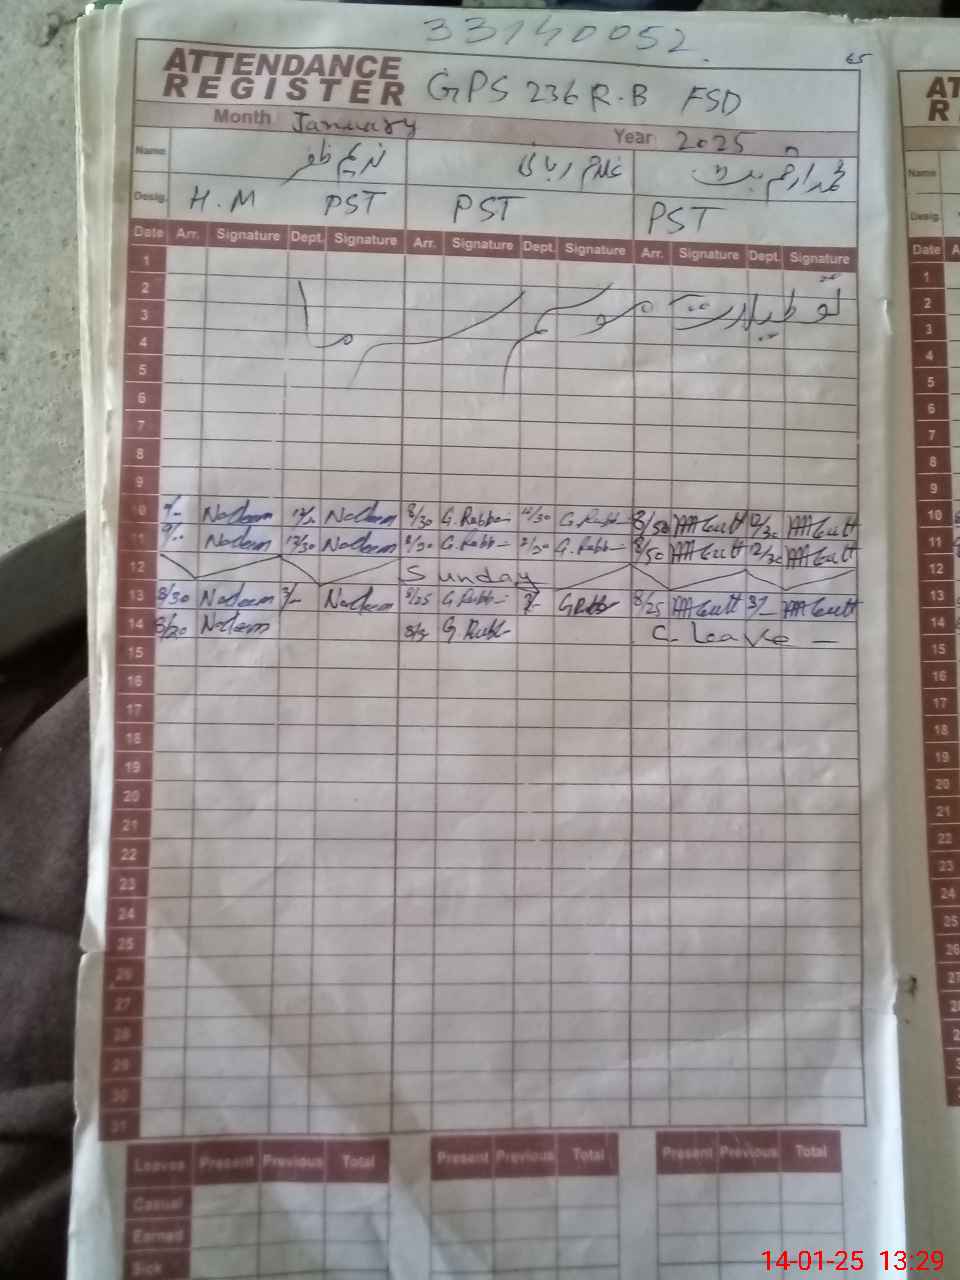 33140052
65
ATTENDANCE REGISTER GPS 236 R.B FSD
Month January Year 2025
Name ندیم ظفر غلام ربانی
Desig. H.M PST PST PST
Date Arr. Signature Dept. Signature Arr. Signature Dept. Signature Arr. Signature Dept. Signature
1
2
3
4
5
6
7
8
9
10 9/- Nadeem Nadeem 8/30 G. Rabbani 12/30 G. Rabb- 8/50 12/30
11 9/.. Nadeem 12/30 Nadeem 8/30 G. Rabb- 12/30 G. Rabb- 8/50 12/30
12 Sunday
13 8/30 Nadeem 3/- Nadeem 8/25 G. Rabb- 3/- G Rabb- 8/25 3/-
14 8/20 Nadeem G. Rabb- C. Leave -
15
16
17
18
19
20
21
22
23
24
25
26
27
28
29
30
31
Leaves Present Previous Total Present Previous Total Present Previous Total
Casual
Earned
Sick
AT
R
Name
Desig.
Date A
1
2
3
4
5
6
7
8
9
10
11
12
13
14
15
16
17
18
19
20
21
22
23
24
25
26
14-01-25 13:29